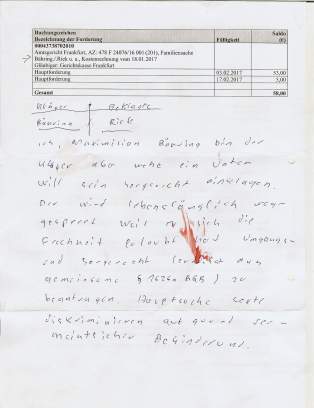 Buchungszeichen
Bezeichnung der Forderung Fälligkeit Saldo (€)
Amtsgericht Frankfurt, AZ: 478 F 24076/16 001 (201), Familiensache
Böhring ./Rick u. a., Kostenrechnung vom 18.01.2017
Gläubiger: Gerichtskasse Frankfurt
Hauptforderung 03.02.2017 53,00
Hauptforderung 17.02.2017 5,00
Gesamt 58,00
Kläger Beklagte
Rick
ich, Maximilian bin der
Kläger aber ein Vater
will sein Sorgerecht einklagen
Der wird lebenslänglich weg-
gesperrt weil er sich die
Frechheit erlaubt hat Umgangs-
und Sorgerecht
gemeinsame § 1626a BGB) zu
beantragen. Hauptsache Leute
diskriminieren aufgrund ver-
meintlicher Behinderung.